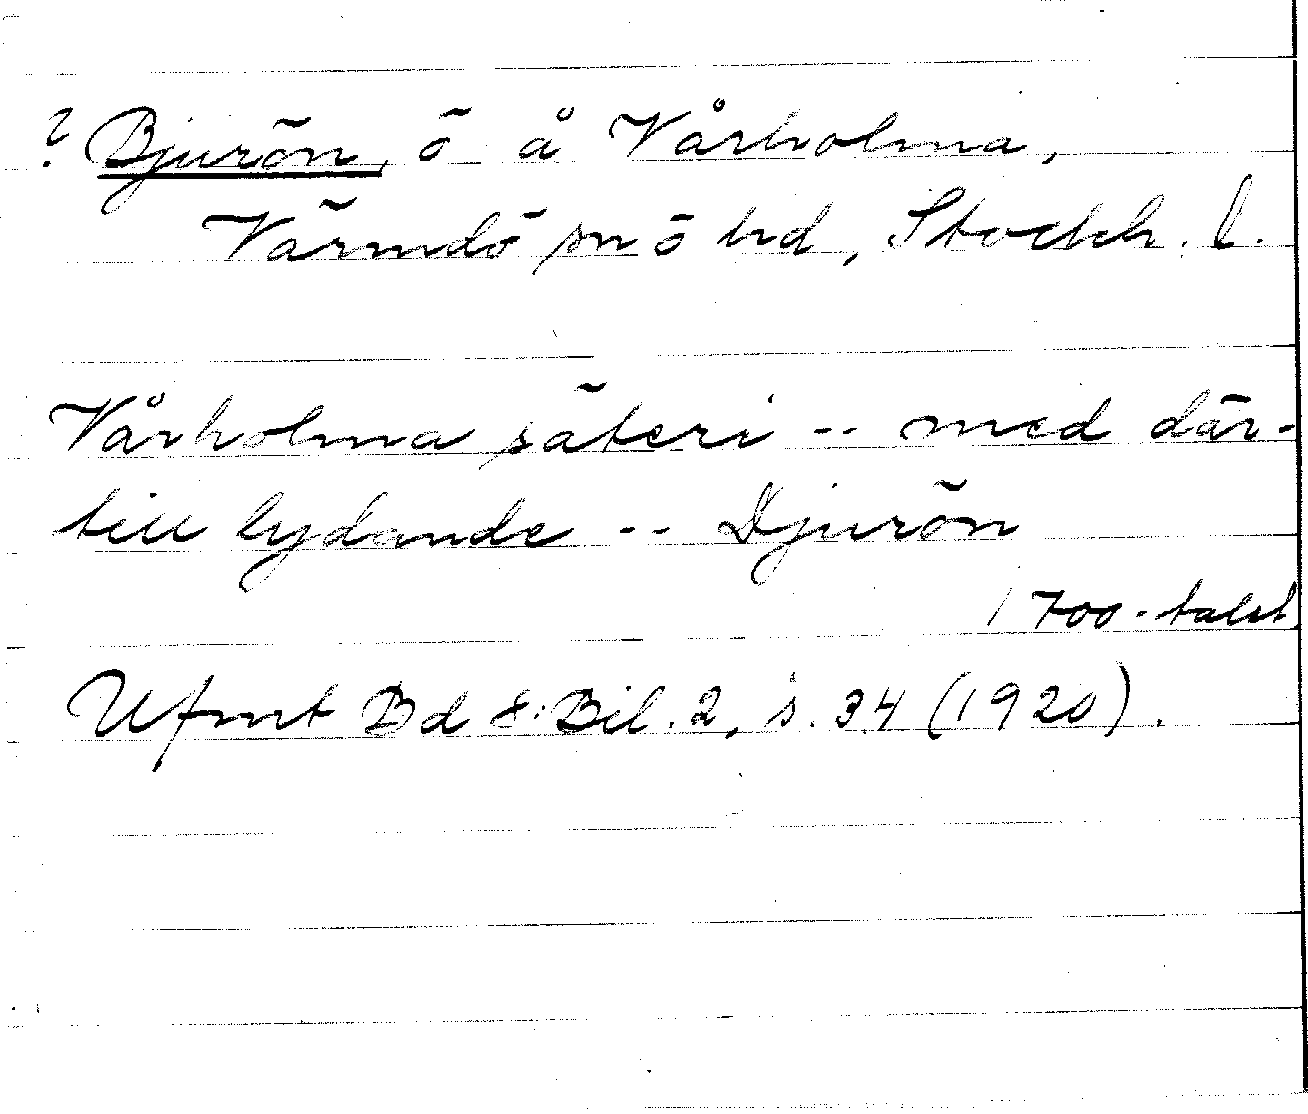 ? Bjurön, ö å Vårholma,
Värmdö sn ö hd, Stockh. l.
Vårholma säteri -- med där-
till lydande -- Djurön
1700-talet
Ufmt Bd 8: Bil. 2, s. 34 (1920).